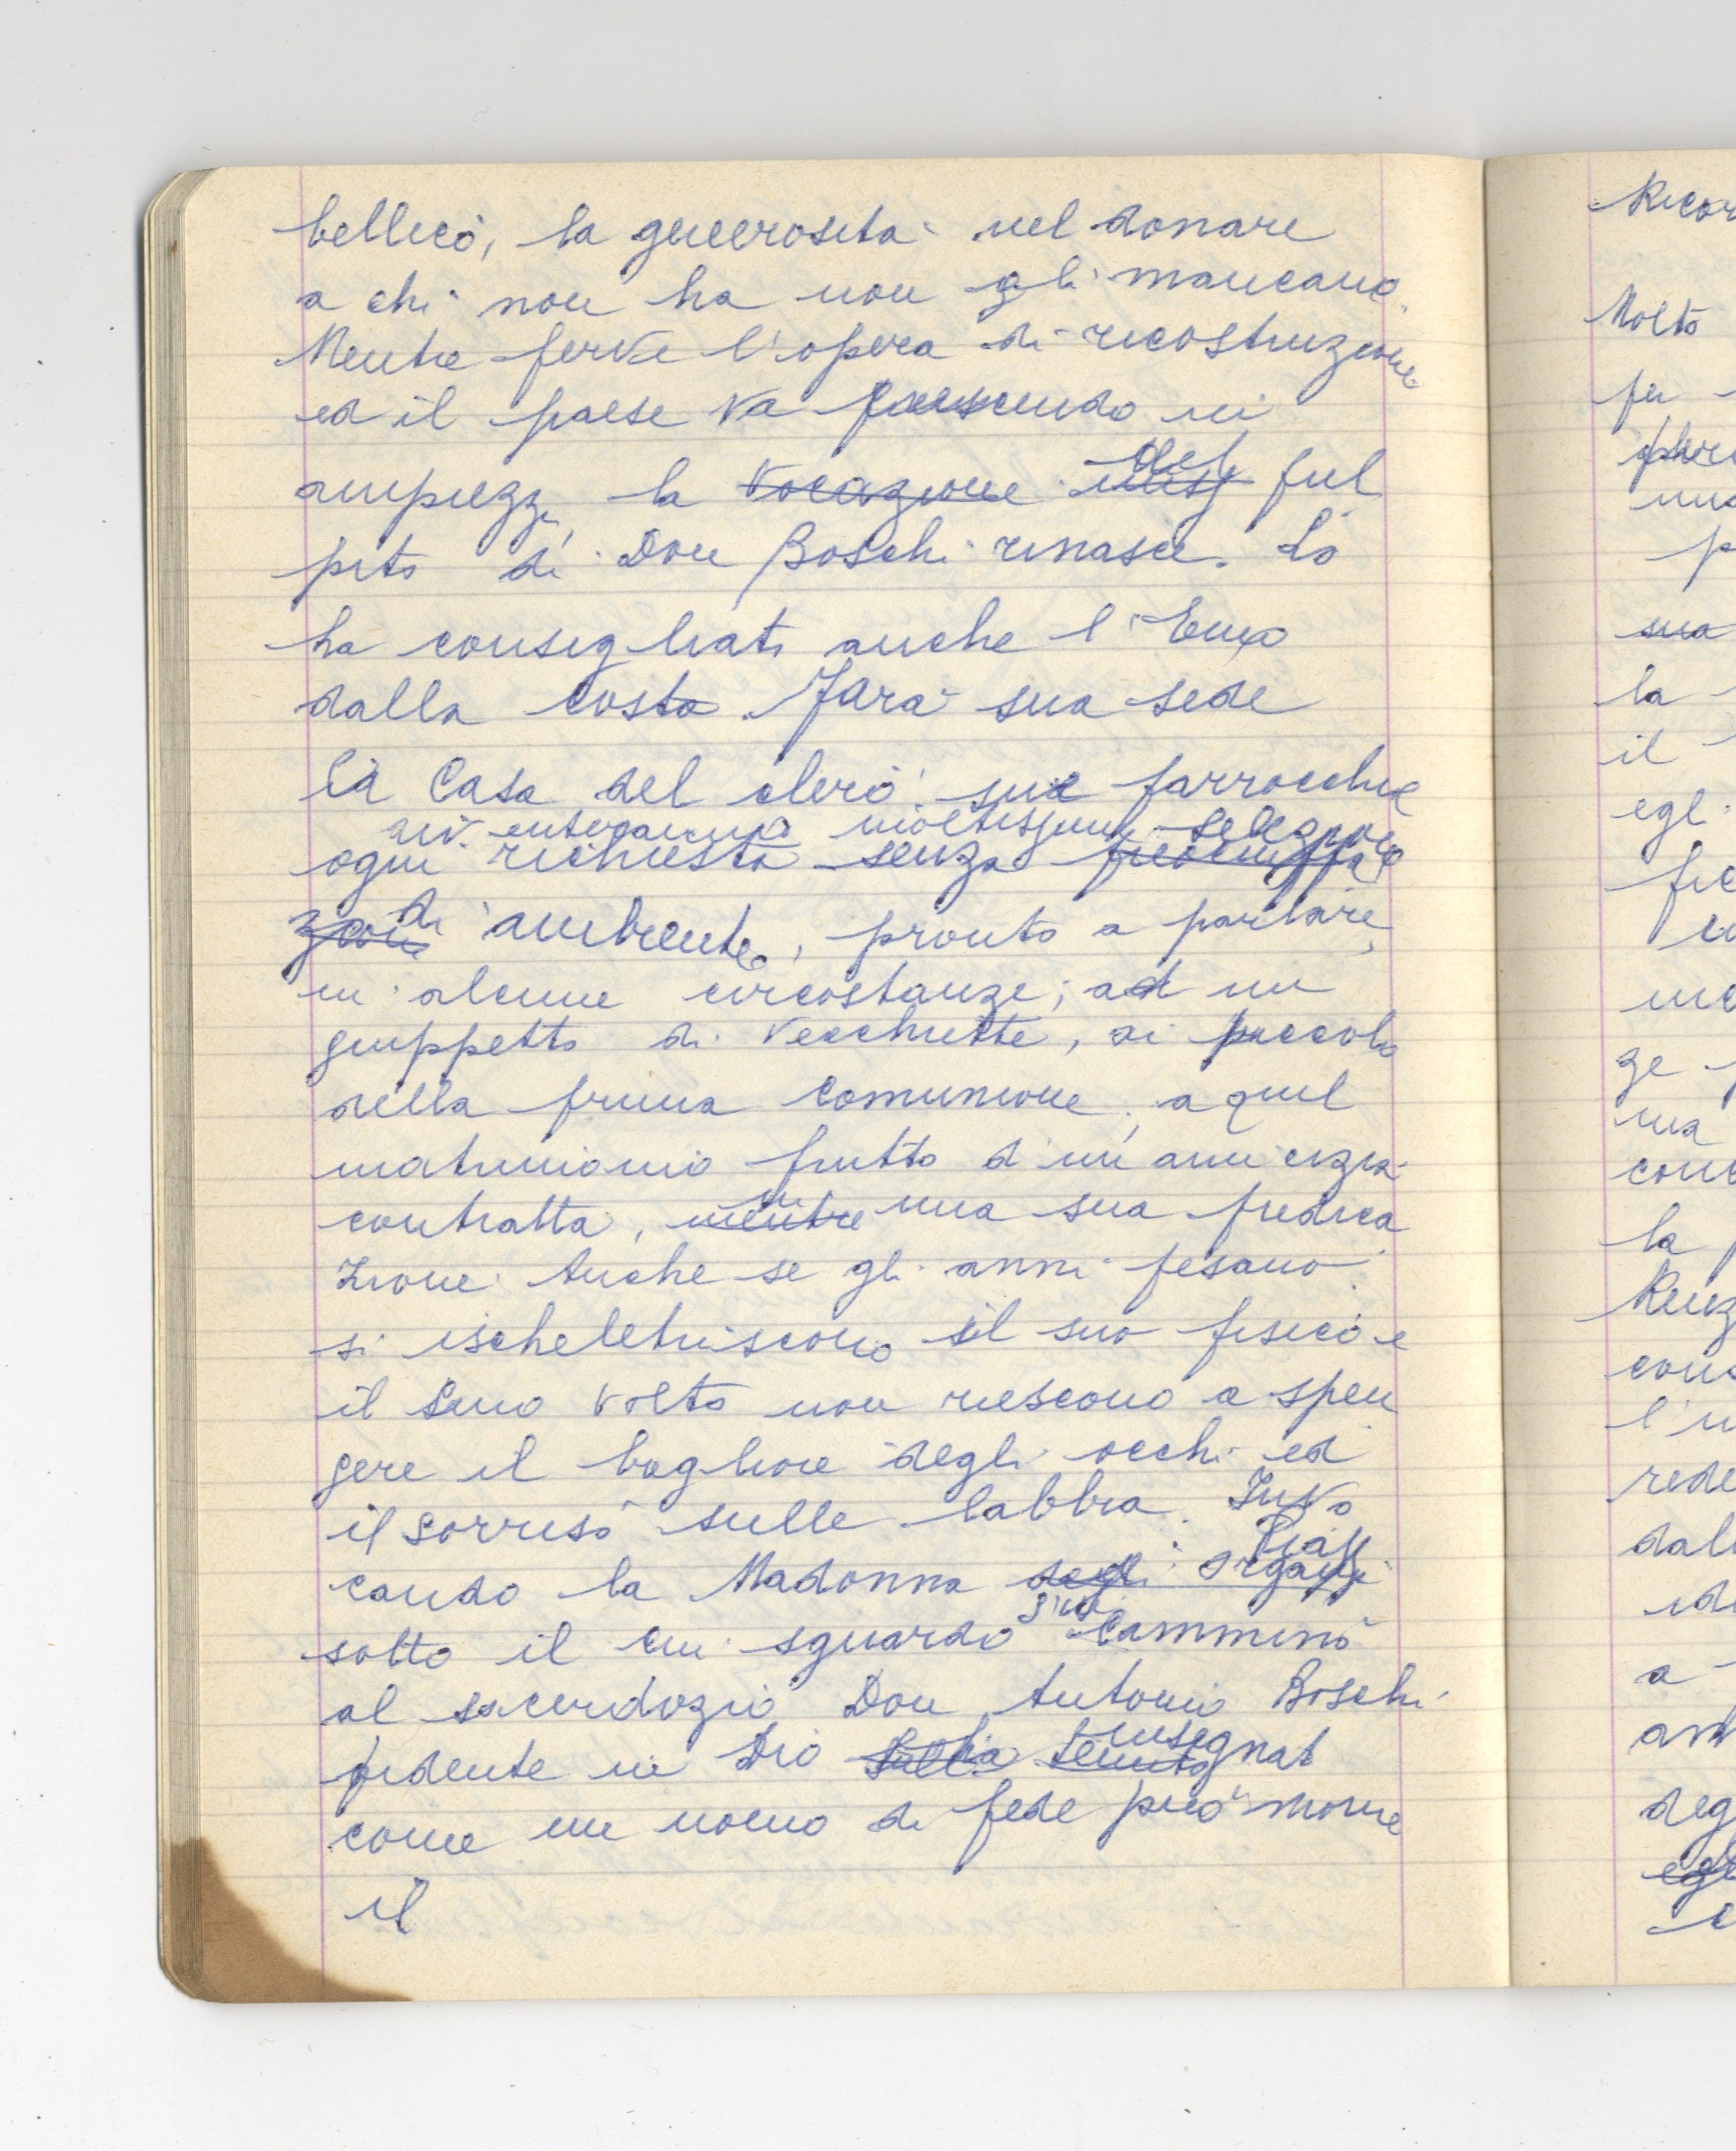 bellico, la generosità nel donare
a chi non ha non gli mancano.
Mentre ferve l'opera di ricostruzione
ed il paese va crescendo in
ampiezza, la vocazione del pul
pito di Don Boschi rinasce. Lo
ha consigliato anche l'Emo
dalla Costa. Farà sua sede
la Casa del clero, sue parrocchie
moltissime
ogni richiesta senza
di ambiente, pronto a parlare,
in alcune circostanze, ad un
gruppetto di vecchiette, ai piccoli
della prima comunione, a quel
matrimonio frutto d'un'amicizia
contratta, mentre in una sua predica
zione. Anche se gli anni pesano
si ischeletriscono il suo fisico e
il suo volto non riescono a spen
gere il bagliore degli occhi ed
il sorriso sulle labbra. Invo
cando la Madonna degli
sotto il cui sguardo camminò
al sacerdozio Don Antonio Boschi
fidente in Dio
come un uomo di fede può morire
il
Ricor
Molto
per
la
il
egl
ze
la
l'u
rede
dal
a
deg